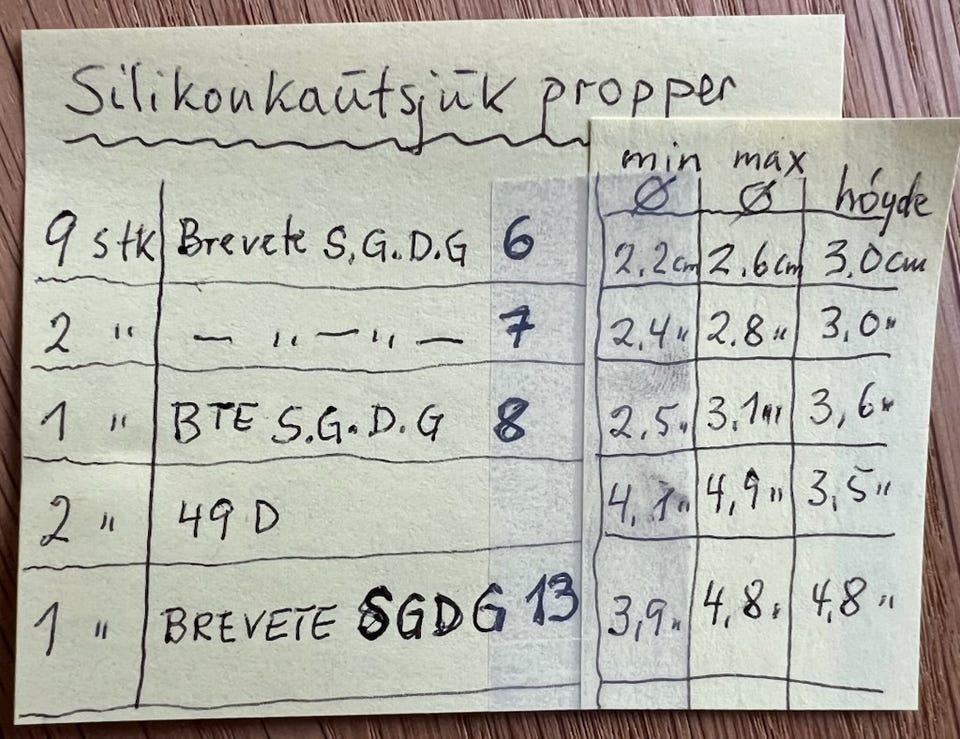 Silikonkautsjuk propper
min max høyde
Ø Ø
9 stk Brevete S.G.D.G 6 2,2cm 2.6cm 3,0cm
2 " — " — " — 7 2,4 " 2.8 " 3,0 "
1 " BTE S.G.D.G 8 2,5 " 3,1 " 3,6 "
2 " 49 D 4,1 " 4,9 " 3,5 "
1 " BREVETE SGDG 13 3,9 " 4,8 " 4,8 "